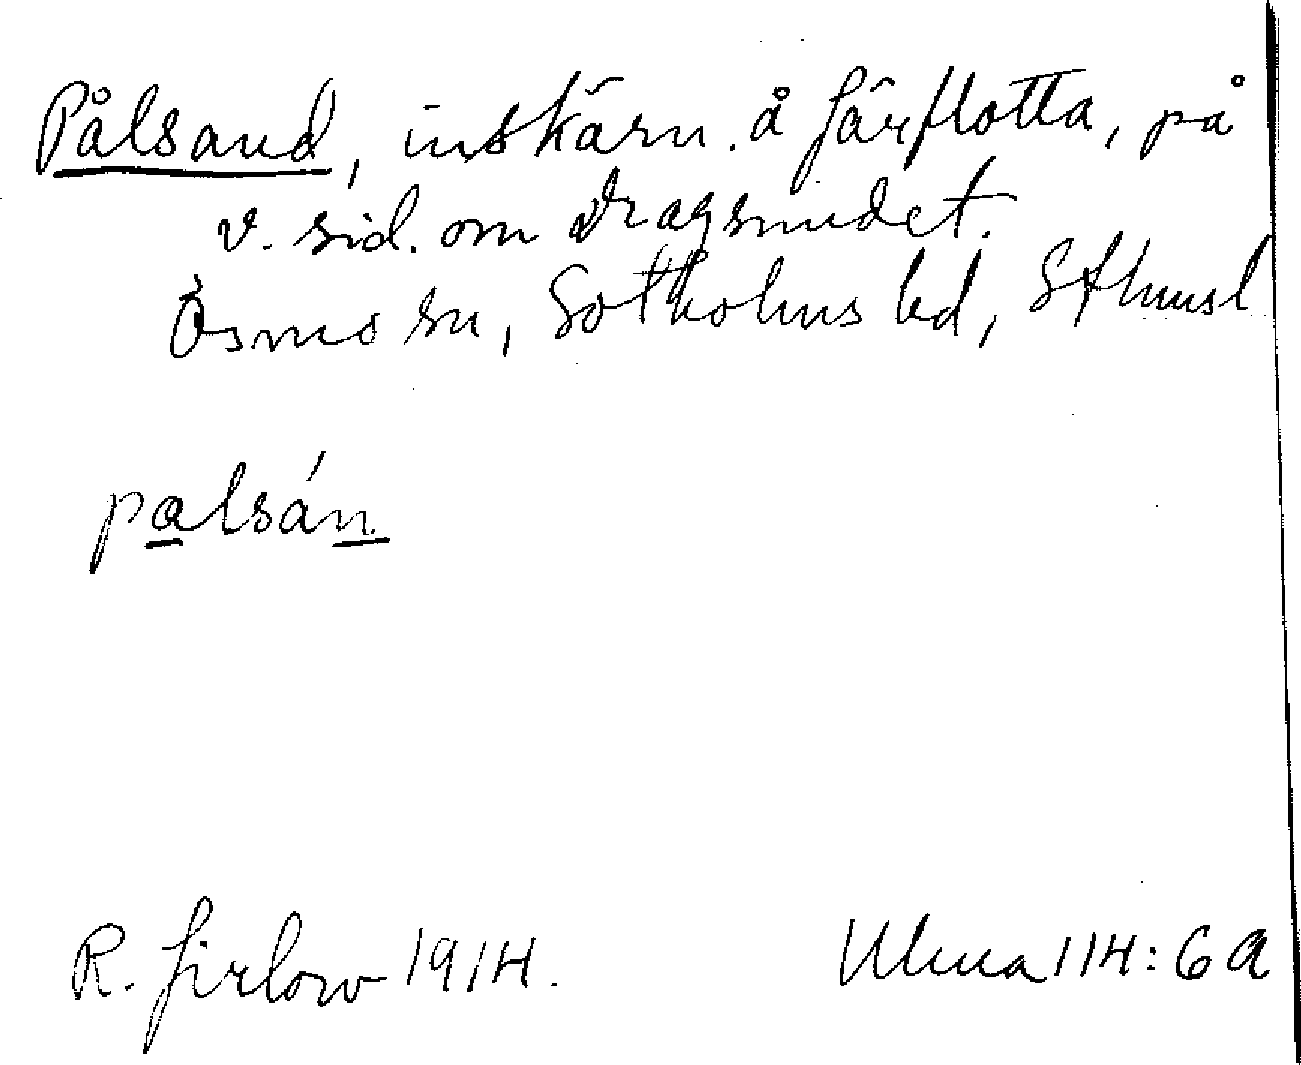 Pålsand, inskärn. å Järflotta, på
v. sid. om Dragsundet.
Ösmo sn, Sotholms hd, Sthmsl
palsán
R. Jirlow 1914.
Ulma 114:6a